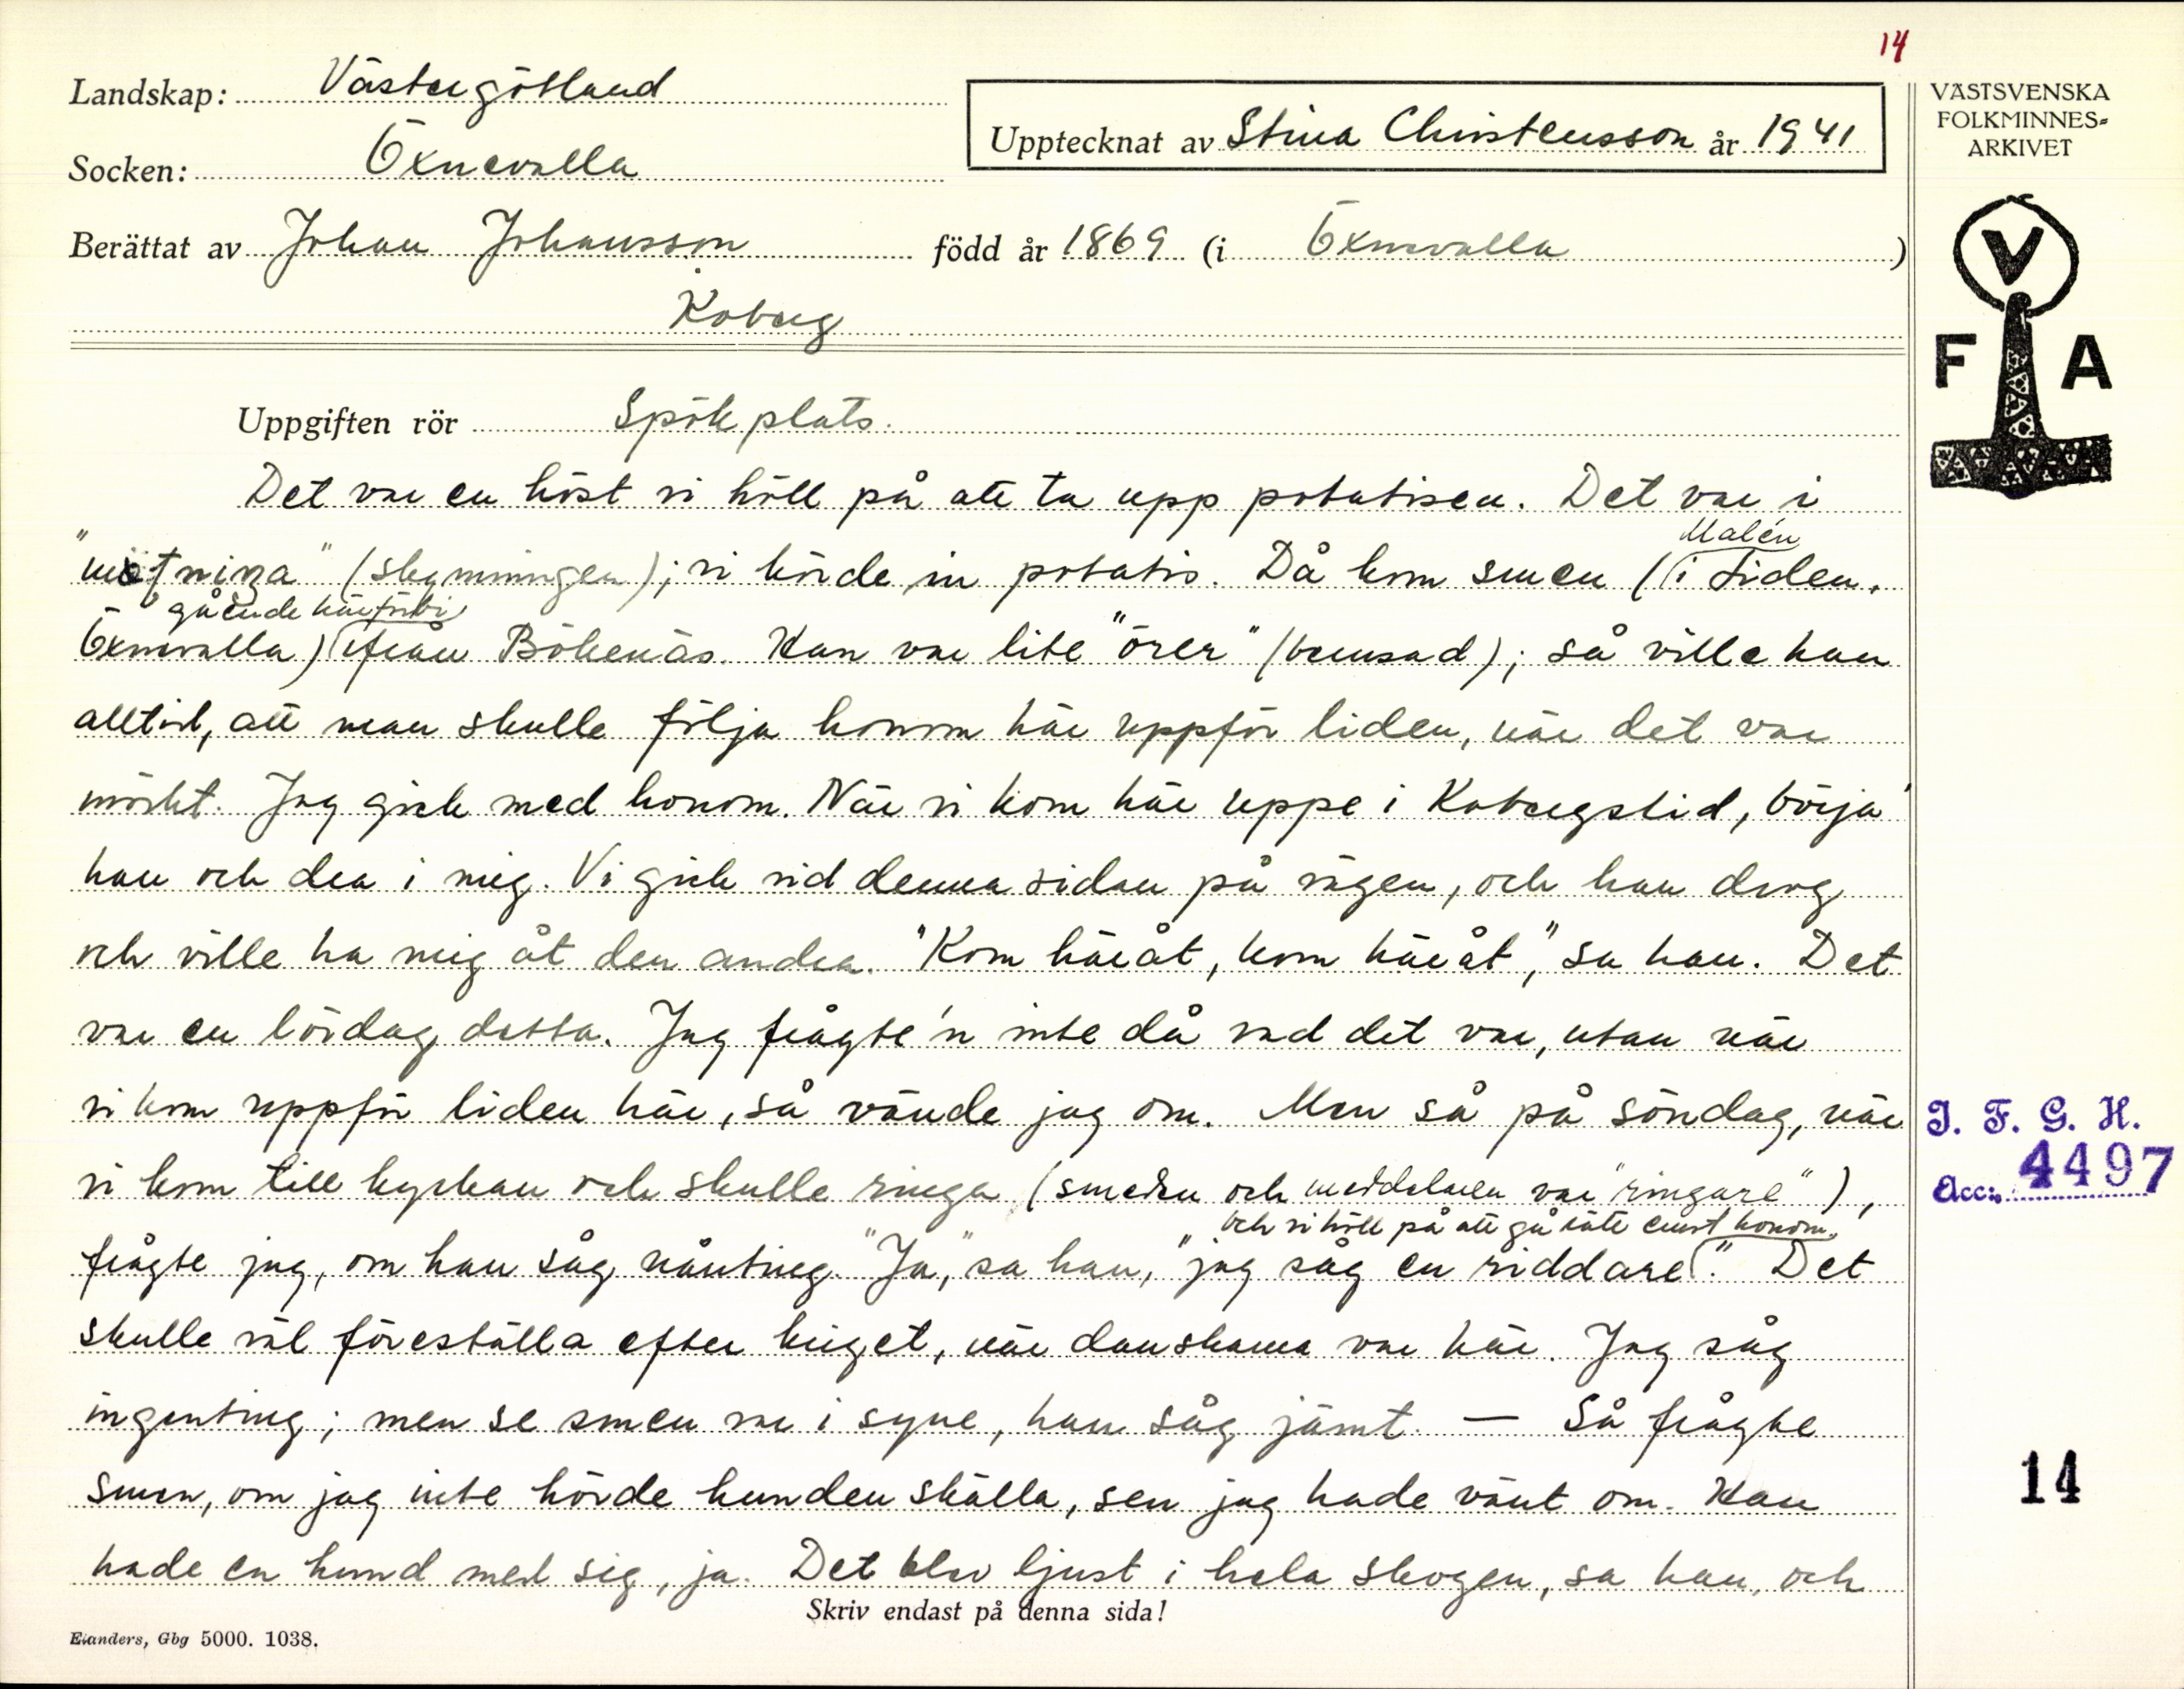 14
Landskap: Västergötland
Socken: Öxnevalla
Upptecknat av Stina Christensson år 1941
Berättat av Johan Johansson född år 1869 (i Öxnevalla)
Koberg
VÄSTSVENSKA
FOLKMINNES-
ARKIVET
V
F A
Uppgiften rör Spökplats.
Det var en höst vi höll på att ta upp potatisen. Det var i
(skymningen); vi körde in potatis. Då kom smen (Malén i Liden,
Öxnevalla) gående här förbi ifrån Bökenäs. Han var lite "örer" (berusad); så ville han
alltid, att man skulle följa honom här uppför liden, när det var
mörkt. Jag gick med honom. När vi kom här uppe i Kobergslid, börja'
han och dra i mig. Vi gick vid denna sidan på vägen, och han drog
och ville ha mig åt den andra. "Kom häråt, kom häråt", sa han. Det
var en lördag detta. Jag frågte'n inte då vad det var, utan när
vi kom uppför liden här, så vände jag om. Men så på söndag, när
vi kom till kyrkan och skulle ringa (smeden och meddelaren var "ringare"),
frågte jag, om han såg nånting. "Ja," sa han, "jag såg en riddare och vi höll på att gå rätt emot honom." Det
skulle väl föreställa efter kriget, när danskarna var här. Jag såg
ingenting; men se smen var i syne, han såg jämt. — Så frågte
smen, om jag inte hörde hunden skälla, sen jag hade vänt om. Han
hade en hund med sig, ja. Det blev ljust i hela skogen, sa han, och
Skriv endast på denna sida!
Elanders, Gbg 5000. 1038.
I. F. G. H.
Acc:. 4497
14